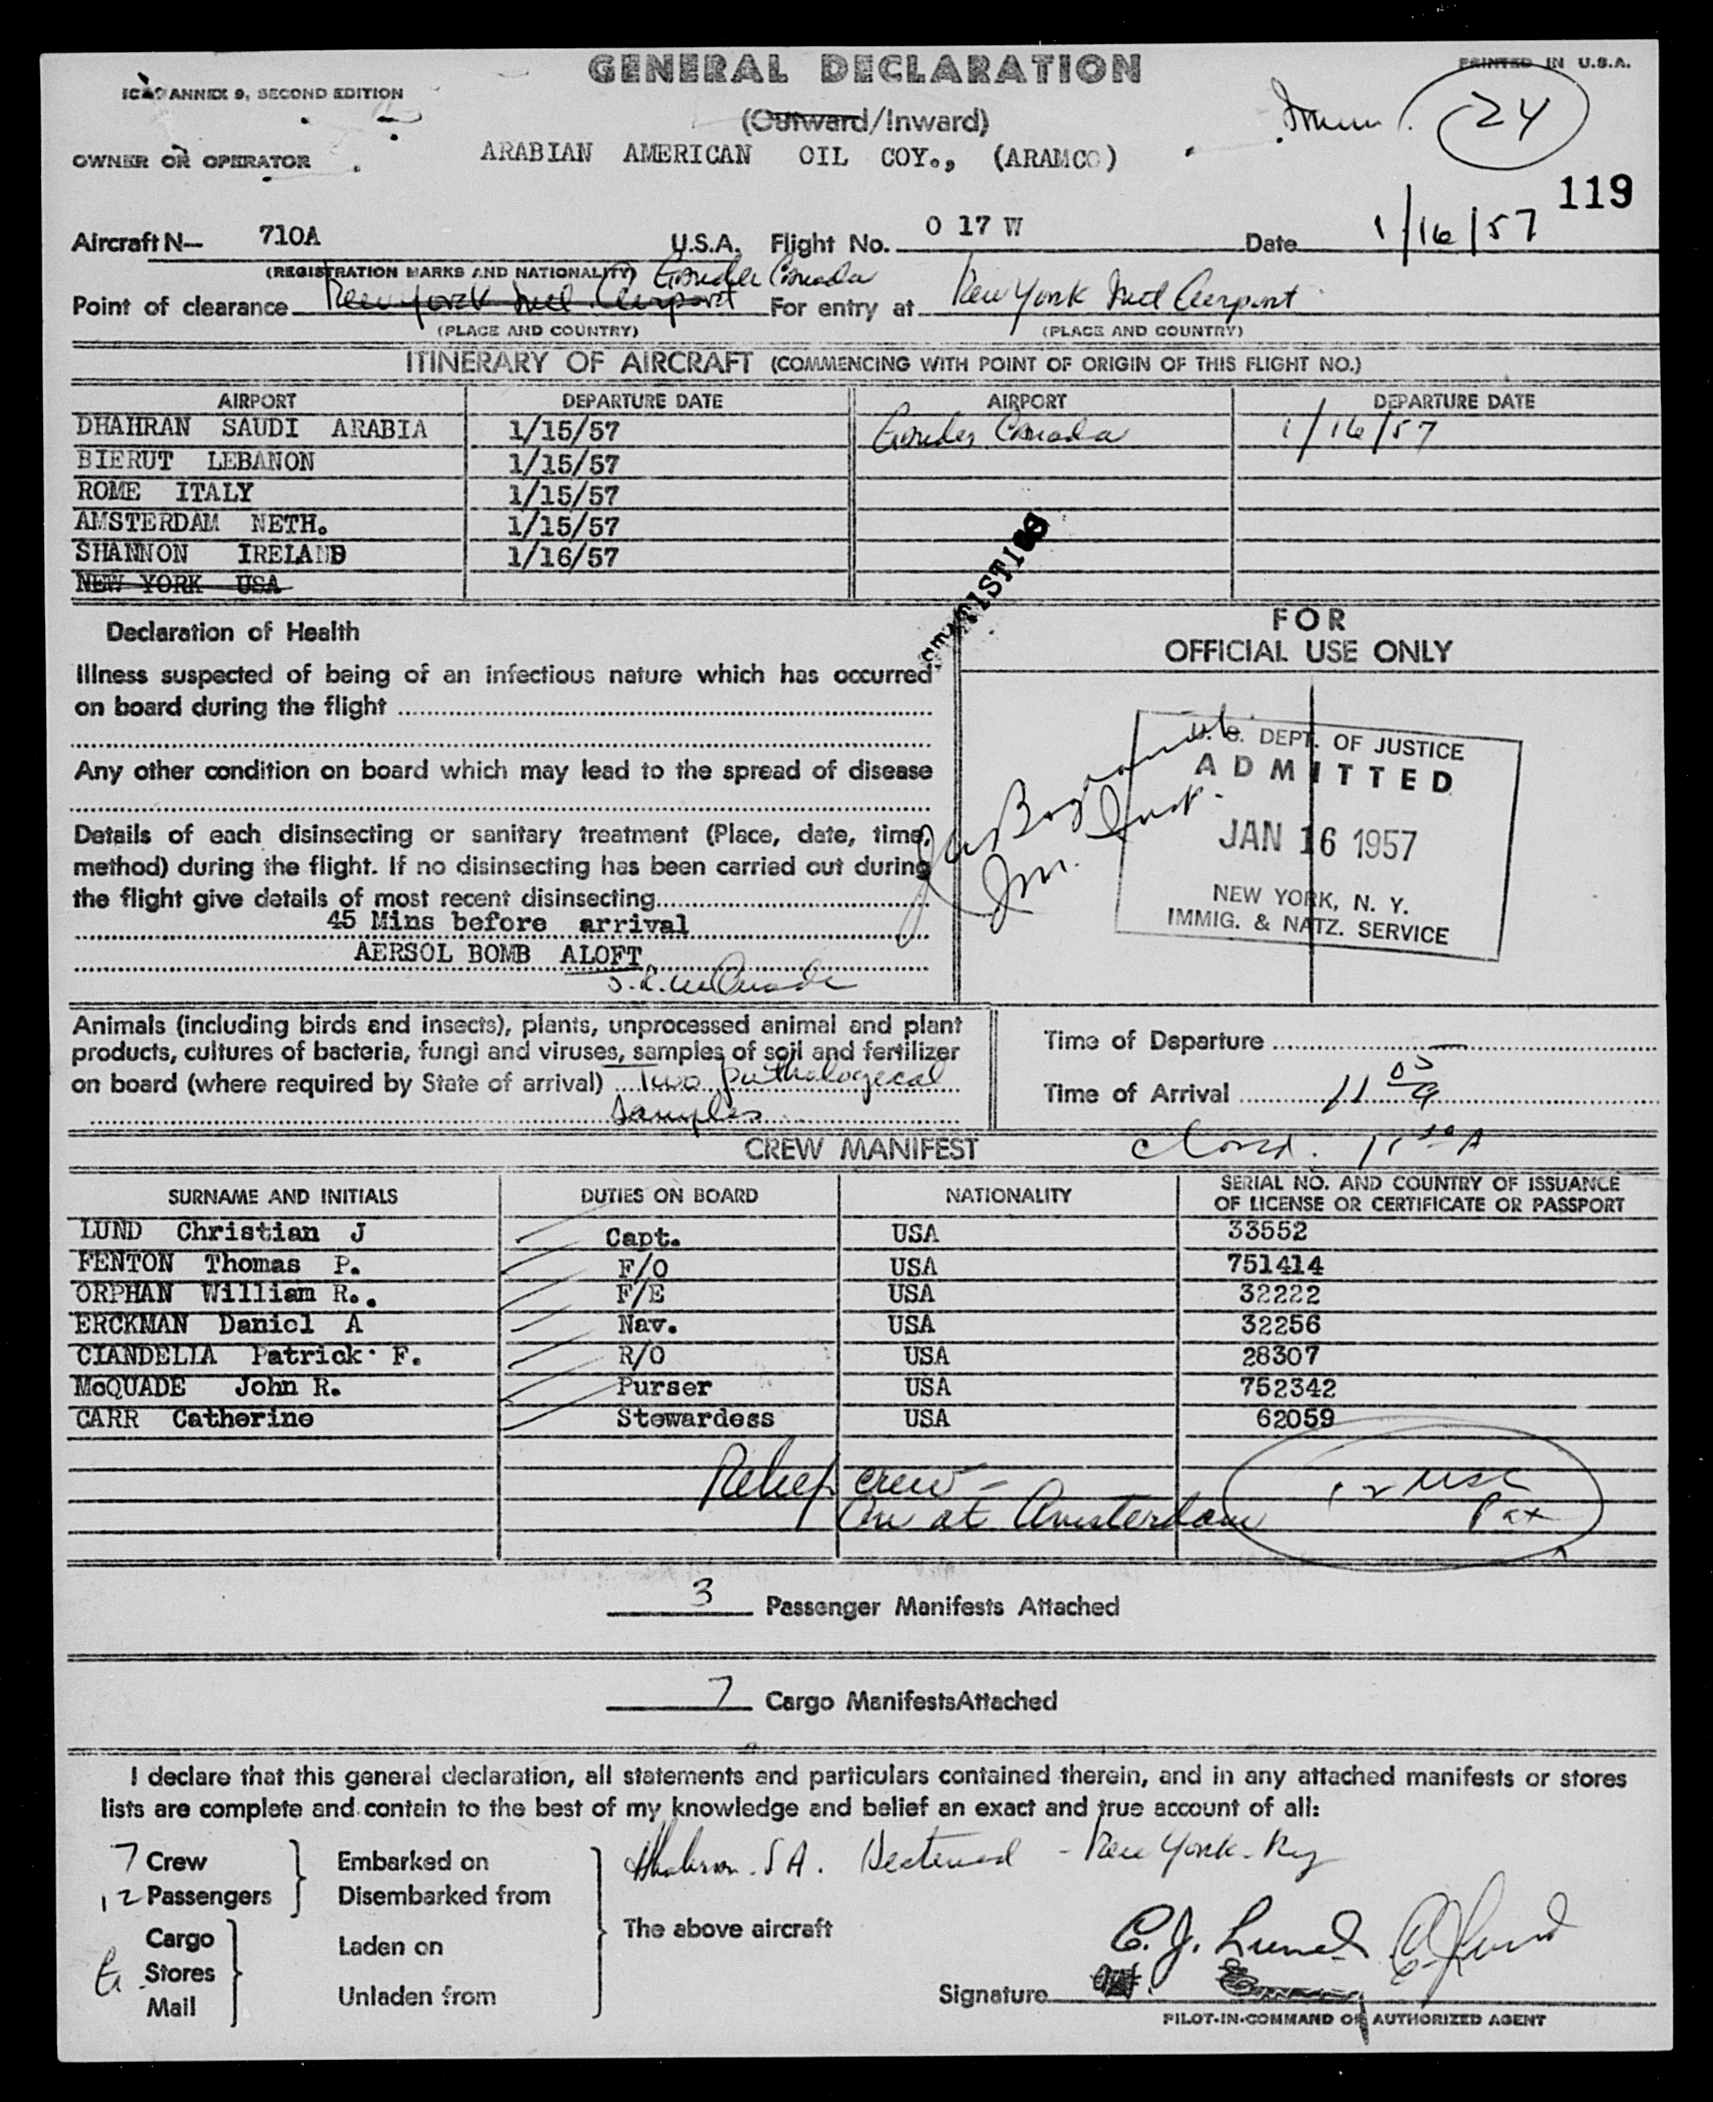 GENERAL DECLARATION
PRINTED IN U.S.A.
ICAO ANNEX 9, SECOND EDITION
(Outward/Inward)
24
OWNER OR OPERATOR ARABIAN AMERICAN OIL COY., (ARAMCO)
119
Aircraft N— 710A U.S.A. Flight No. O 17 W Date 1/16/57
(REGISTRATION MARKS AND NATIONALITY) Gander Canada
Point of clearance New York Intl. Airport For entry at New York Intl Airport
(PLACE AND COUNTRY) (PLACE AND COUNTRY)
ITINERARY OF AIRCRAFT (COMMENCING WITH POINT OF ORIGIN OF THIS FLIGHT NO.)
AIRPORT DEPARTURE DATE AIRPORT DEPARTURE DATE
DHAHRAN SAUDI ARABIA 1/15/57 Gander Canada 1/16/57
BIERUT LEBANON 1/15/57
ROME ITALY 1/15/57
AMSTERDAM NETH. 1/15/57
SHANNON IRELAND 1/16/57
NEW YORK USA
STATISTICS
Declaration of Health
Illness suspected of being of an infectious nature which has occurred
on board during the flight
Any other condition on board which may lead to the spread of disease
Details of each disinsecting or sanitary treatment (Place, date, time,
method) during the flight. If no disinsecting has been carried out during
the flight give details of most recent disinsecting
45 Mins before arrival
AERSOL BOMB ALOFT
J. R. McQuade
FOR
OFFICIAL USE ONLY
U. S. DEPT. OF JUSTICE
ADMITTED
JAN 16 1957
NEW YORK, N. Y.
IMMIG. & NATZ. SERVICE
Im. Insp.
Animals (including birds and insects), plants, unprocessed animal and plant
products, cultures of bacteria, fungi and viruses, samples of soil and fertilizer
on board (where required by State of arrival) Two pathalogical
samples
Time of Departure —
Time of Arrival 11 05 A
CREW MANIFEST
SURNAME AND INITIALS DUTIES ON BOARD NATIONALITY SERIAL NO. AND COUNTRY OF ISSUANCE
OF LICENSE OR CERTIFICATE OR PASSPORT
LUND Christian J Capt. USA 33552
FENTON Thomas P. F/O USA 751414
ORPHAN William R.. F/E USA 32222
ERCKMAN Daniel A Nav. USA 32256
CIANDELLA Patrick F. R/O USA 28307
McQUADE John R. Purser USA 752342
CARR Catherine Stewardess USA 62059
Relief crew –
on at Amsterdam
12 USC
Pax
3 Passenger Manifests Attached
7 Cargo ManifestsAttached
I declare that this general declaration, all statements and particulars contained therein, and in any attached manifests or stores
lists are complete and contain to the best of my knowledge and belief an exact and true account of all:
7 Crew
12 Passengers
Cargo
Stores
Mail
Embarked on
Disembarked from
Laden on
Unladen from
Dhahran. S A. Destined – New York. Ny
The above aircraft
C. J. Lund CJLund
Signature
PILOT-IN-COMMAND OR AUTHORIZED AGENT